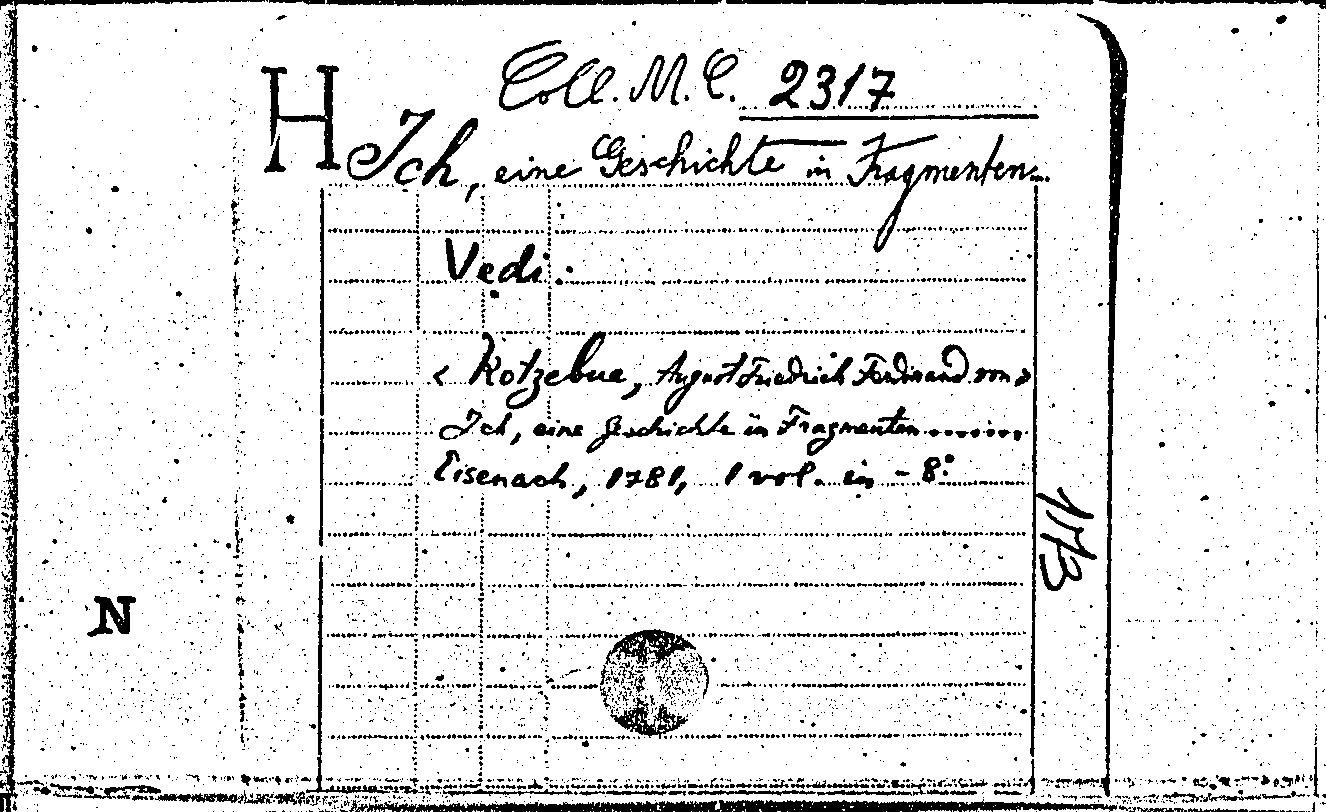 Coll. M. C. 2317
H
Ich, eine Geschichte in Fragmenten.
Vedi:
< Kotzebue, August Friedrich Ferdinand von >
Ich, eine Geschichte in Fragmenten.......
Eisenach, 1781, 1 vol. in - 8°
N